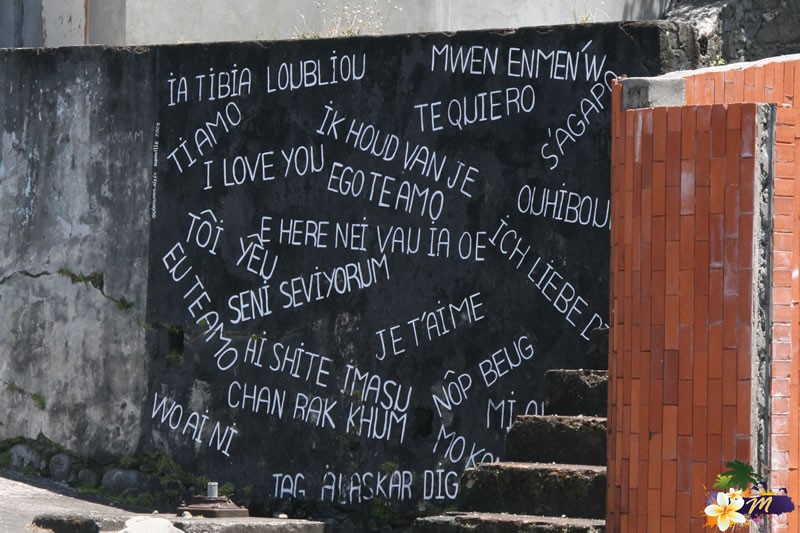 iA TiBiA LOUBLiOU
MWEN ENMEN'W
TE QUiERO
S'AGAPO
Ti AMO
iK HOUD VAN JE
I LOVE YOU
EGO TE AMO
OUHiBOU
TÔi YÊU
E HERE NEi VAU iA OE
iCH LiEBE D
EU TE AMO
SENi SEViYORUM
JE T'AiME
Ai SHiTE iMASU
NÔP BEUG
CHAN RAK KHUM
Mi
WO Ai Ni
MO
TAG ALASKAR DiG
M